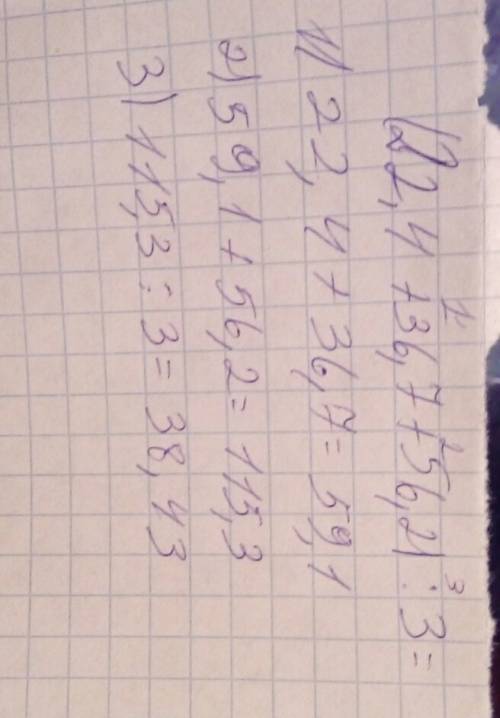 1 2 3
(22,4 + 36,7 + 56,2) : 3 =
1) 22,4 + 36,7 = 59,1
2) 59,1 + 56,2 = 115,3
3) 115,3 : 3 = 38,43